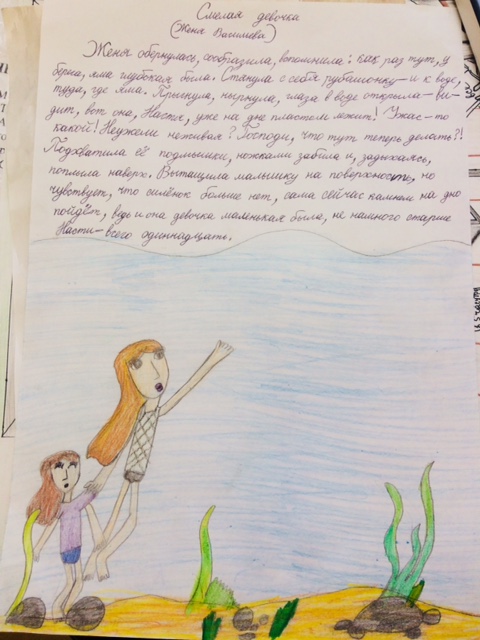 Смелая девочка
(Женя Васильева)
Женя обернулась, сообразила, вспомнила: как раз тут, у
берега, яма глубокая была. Стянула с себя рубашонку — и к воде,
туда, где яма. Прыгнула, нырнула, глаза в воде открыла — ви-
дит, вот она, Настя, уже на дне пластом лежит! Ужас-то
какой! Неужели неживая? Господи, что тут теперь делать?!
Подхватила её подмышки, ножками забила и, задыхаясь,
поплыла наверх. Вытащила малышку на поверхность, но
чувствует, что силёнок больше нет, сама сейчас камнем на дно
пойдёт, ведь и она девочка маленькая была, не намного старше
Насти — всего одиннадцать.